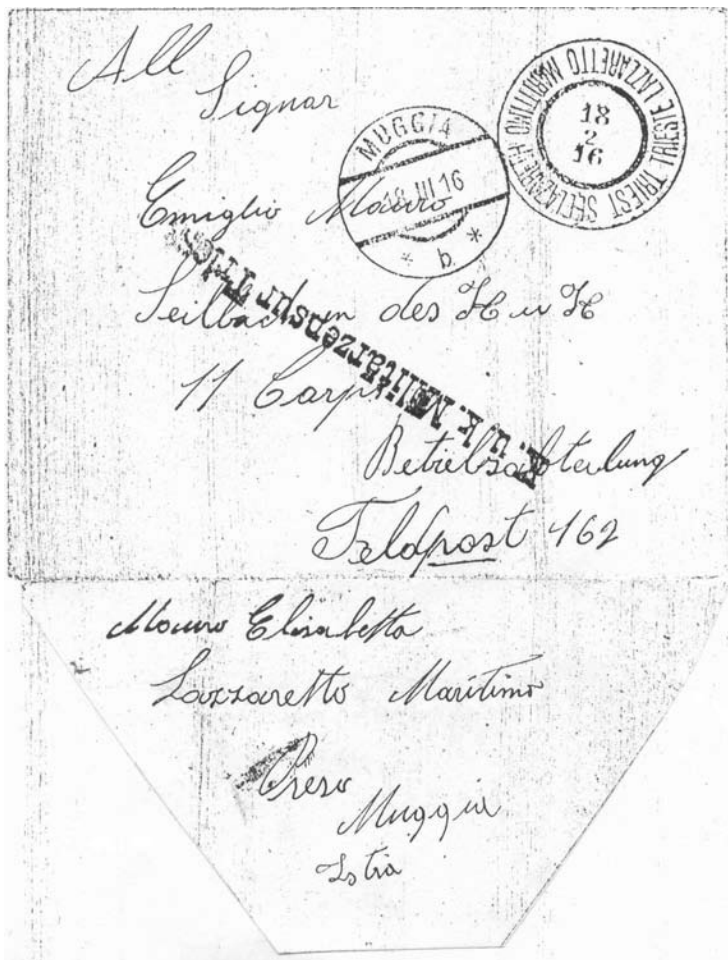 All
Signor
Emiglio Mauro
Seilbahn des K u K
11 Carps
Betriebsabterlung
Feldpost 162
MUGGIA
18 III 16
* b *
TRIEST SEELAZARETH
TRIESTE LAZZARETTO MARITTIMO
18
2
16
K. u. k. Militärzensur Triest
Mauro Elisabetta
Lazzaretto Maritimo
Preso
Muggia
Istria